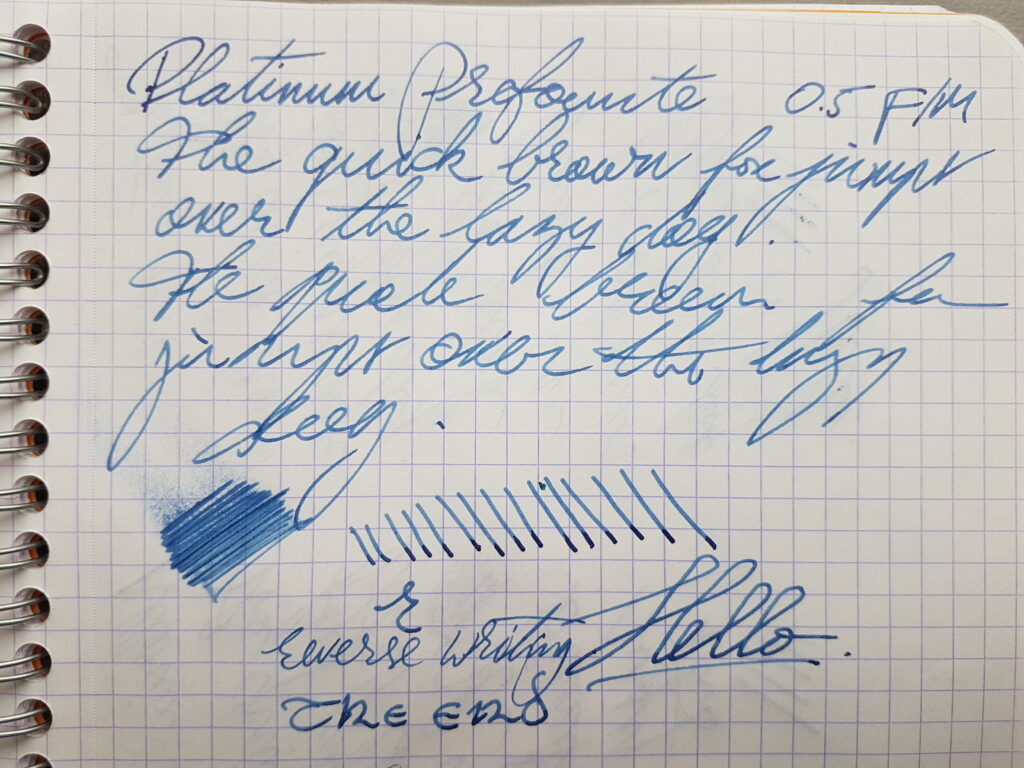 Platinum Prefounte 0.5 F/M
The quick brown fox jumpt
over the lazy dog.
The quick brown fox
jumpt over the lazy
dog.
r
Reverse Writing Hello.
THE END